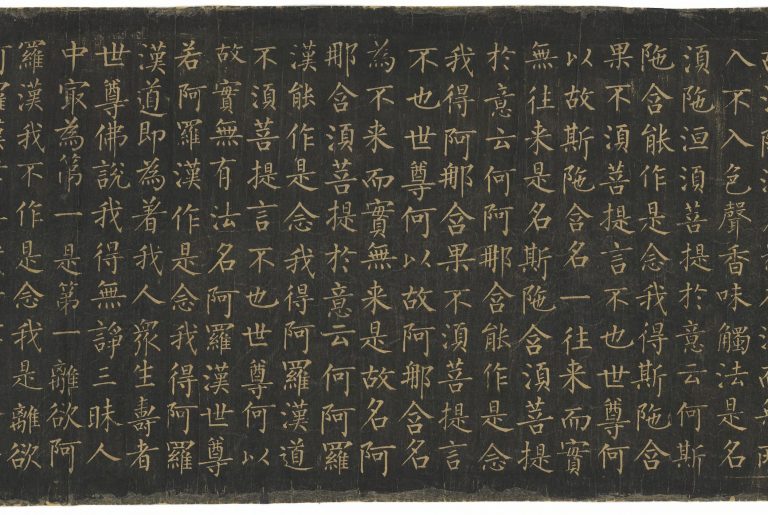 入不入色聲香味觸法是名
須陁洹須菩提於意云何斯
陁含能作是念我得斯陁含
果不須菩提言不也世尊何
以故斯陁含名一往来而實
無往来是名斯陁含須菩提
於意云何阿那含能作是念
我得阿那含果不須菩提言
不也世尊何以故阿那含名
為不来而實無来是故名阿
那含須菩提於意云何阿羅
漢能作是念我得阿羅漢道
不須菩提言不也世尊何以
故實無有法名阿羅漢世尊
若阿羅漢作是念我得阿羅
漢道即為著我人衆生壽者
世尊佛說我得無諍三昧人
中冣為第一是第一離欲阿
羅漢我不作是念我是離欲